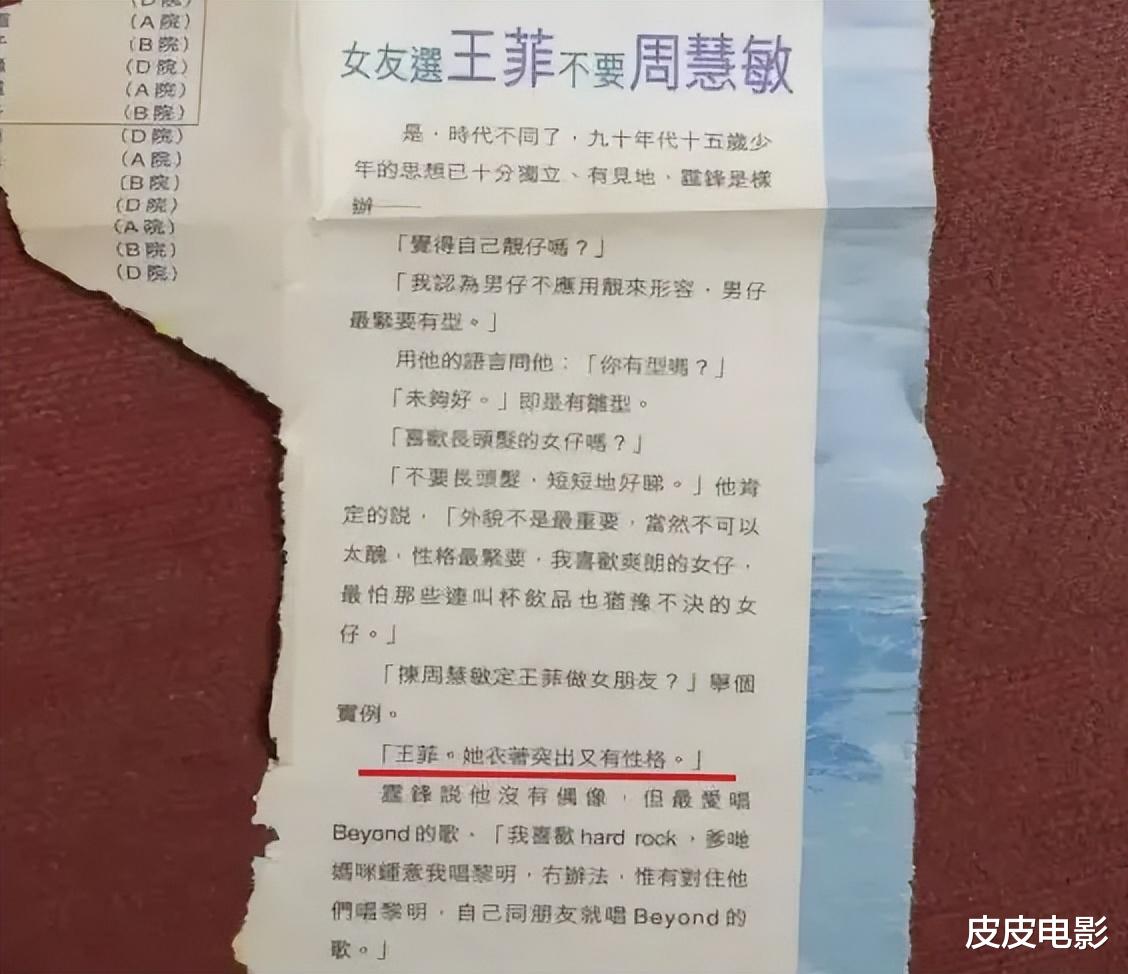 (D院)
(A院)
(B院)
(D院)
(A院)
(B院)
(D院)
(A院)
(B院)
(D院)
(A院)
(B院)
(D院)
女友選王菲不要周慧敏
是，時代不同了，九十年代十五歲少
年的思想已十分獨立、有見地，霆鋒是樣
辦——
「覺得自己靚仔嗎？」
「我認為男仔不應用靚來形容，男仔
最緊要有型。」
用他的語言問他：「你有型嗎？」
「未夠好。」即是有雛型。
「喜歡長頭髮的女仔嗎？」
「不要長頭髮，短短地好睇。」他肯
定的説，「外貌不是最重要，當然不可以
太醜，性格最緊要，我喜歡爽朗的女仔，
最怕那些連叫杯飲品也猶豫不決的女
仔。」
「揀周慧敏定王菲做女朋友？」舉個
實例。
「王菲。她衣著突出又有性格。」
霆鋒説他沒有偶像，但最愛唱
Beyond的歌，「我喜歡hard rock，爹哋
媽咪鍾意我唱黎明，冇辦法，惟有對住他
們唱黎明，自己同朋友就唱Beyond的
歌。」
皮皮电影